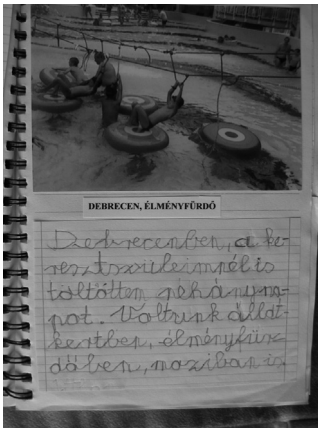 DEBRECEN, ÉLMÉNYFÜRDŐ
Debrecenben, a ke-
resztszüleimnél is
töltöttem néhány na-
pot. Voltunk állat-
kertben, élményfür-
dőben, moziban is